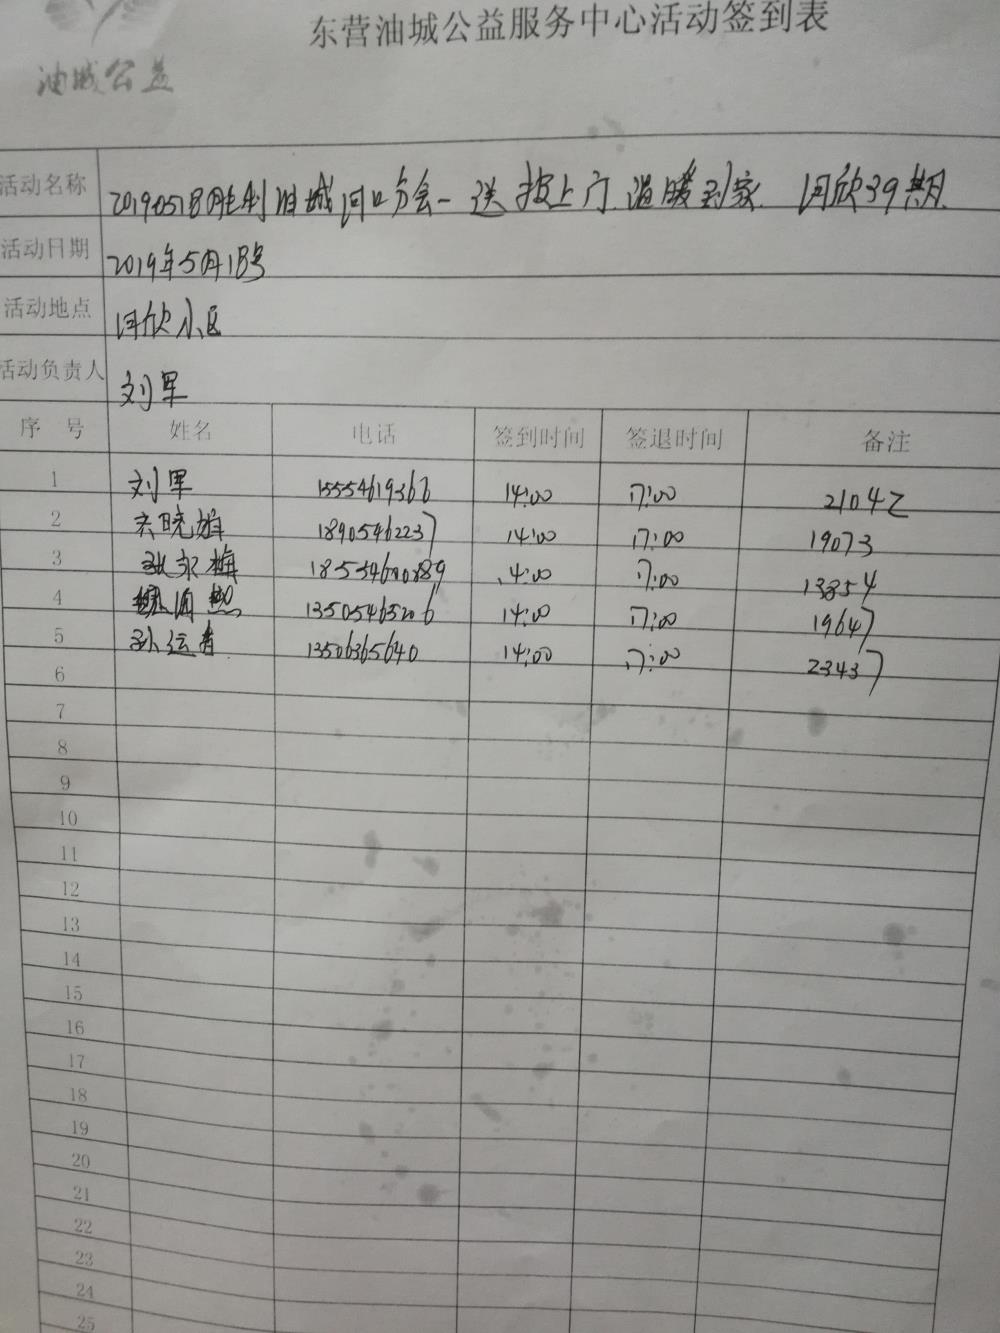 东营油城公益服务中心活动签到表
油城公益
活动名称 20190518胜利油城河口分会-送报上门.温暖到家. 河欣39期
活动日期 2019年5月18号
活动地点 河欣小区
活动负责人 刘军
序 号 姓名 电话 签到时间 签退时间 备注
1 刘军 14:00 17:00
2 18905462237 14:00 17:00 19073
3 14:00 17:00 13854
4 13505465206 14:00 17:00 19647
5 13506365640 14:00 17:00 23437
6
7
8
9
10
11
12
13
14
15
16
17
18
19
20
21
22
23
24
25